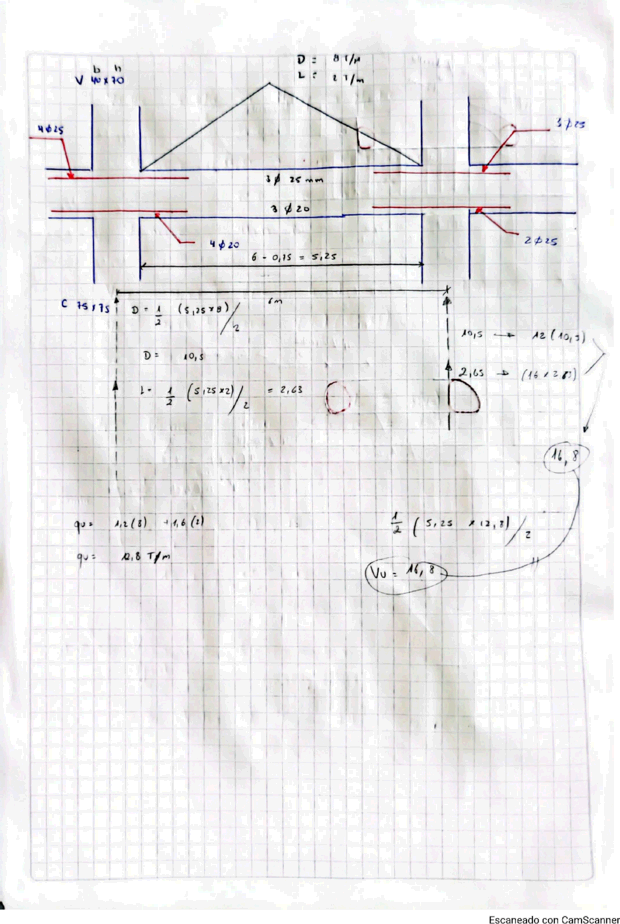 b h
V 40x70
D = 8 T/m
L = 2 T/m
4Ø25
3Ø25
3 Ø 25 mm
3 Ø 20
4Ø20
2Ø25
6 - 0,75 = 5,25
6m
C 75x75
D = 1/2 (5,25x8)/2
D = 10,5
L = 1/2 (5,25x2)/2 = 2,63
10,5 → 12(10,5)
2,63 →
16,8
qu = 1,2(8) +1,6(2)
qu = 12,8 T/m
1/2 (5,25 x12,8)/2
Vu = 16,8
Escaneado con CamScanner